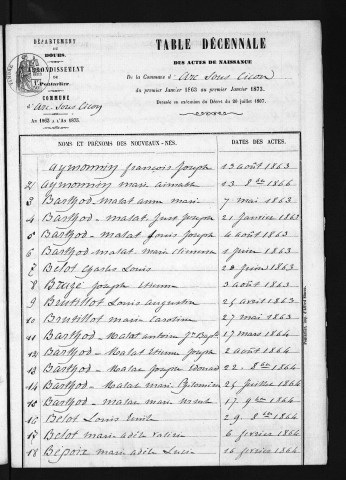 DÉPARTEMENT
DU
DOUBS.
ARRONDISSEMENT
de
Pontarlier
COMMUNE
d'Arc sous Cicon
AN 1863 A L'AN 1873.
TABLE DÉCENNALE
DES ACTES DE NAISSANCE
De la Commune d'Arc sous Cicon
du premier Janvier 1863 au premier Janvier 1873,
Dressée en exécution du Décret du 20 juillet 1807.
NOMS ET PRÉNOMS DES NOUVEAUX-NÉS.
DATES DES ACTES.
Aymonnin françois Joseph 13 août 1863
2 Aymonnin marie 13 8bre 1866
3 Barthod-malat marie 7 mai 1863
4 Barthod-malat just Joseph 21 janvier 1863
5 Barthod-malat Louis Joseph 4 août 1863
6 Barthod-malat marie 1 juin 1863
7 Belot Charles Louis 28 juin 1863
8 Joseph Etienne 3 août 1863
9 Brutillot Louis augustin 25 avril 1863
10 Brutillot marie Caroline 27 mai 1863
11 Barthod-Malat antoine Jn Bapte 17 mars 1864
12 Barthod-Malat Etienne Joseph 2 août 1864
13 Barthod-Malat Joseph Edouard 22 8bre 1864
14 Barthod-Malat marie Philomène 25 juillet 1864
15 Barthod-malat marie 17 9bre 1864
16 Belot Louis Emile 29 8bre 1864
17 Belot marie adèle 6 février 1864
18 marie adèle Lucie 16 février 1864